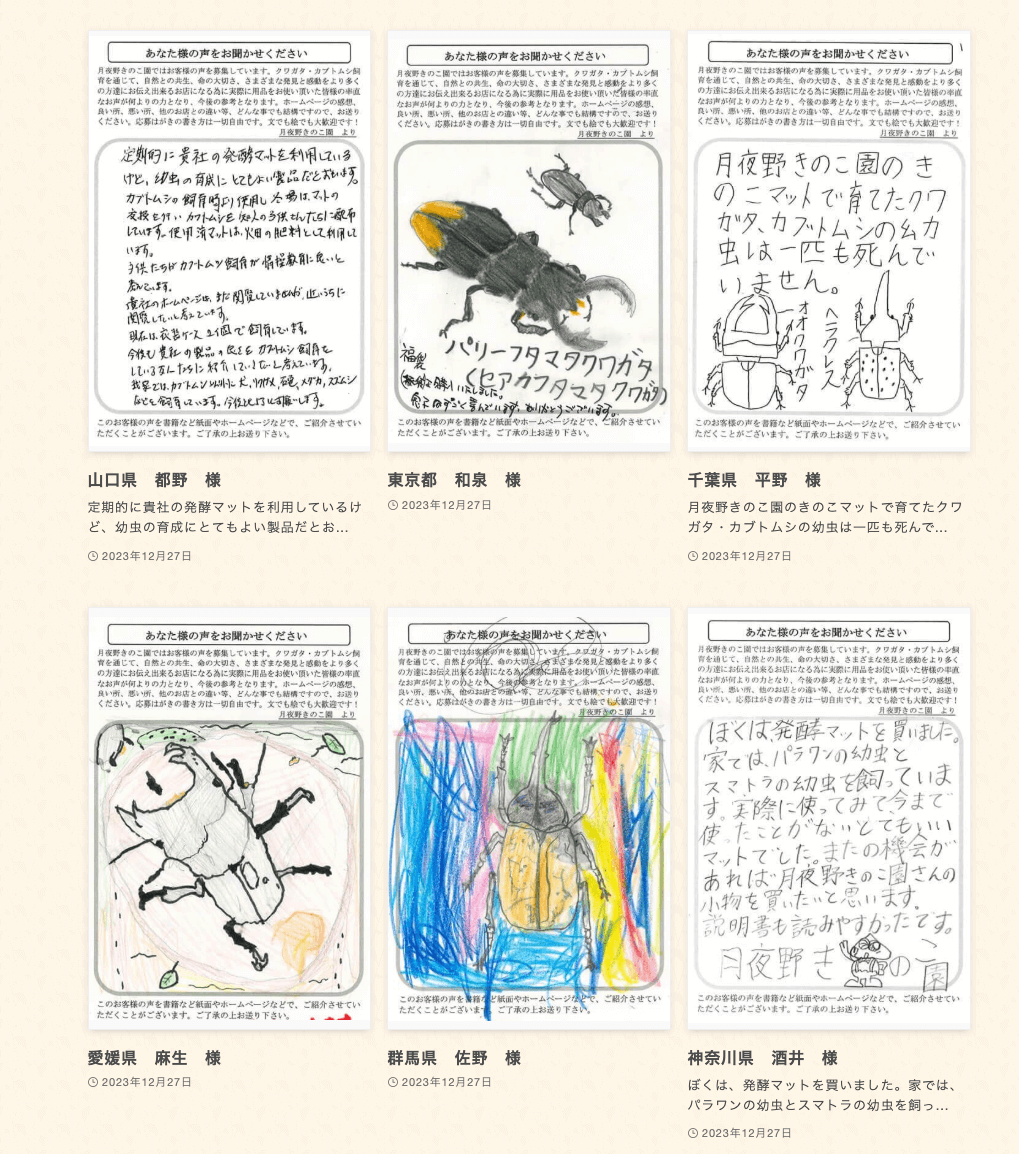 あなた様の声をお聞かせください
月夜野きのこ園ではお客様の声を募集しています。クワガタ・カブトムシ飼
育を通じて、自然との共生、命の大切さ、さまざまな発見と感動をより多く
の方達にお伝え出来るお店になる為に実際に用品をお使い頂いた皆様の率直
なお声が何よりの力となり、今後の参考となります。ホームページの感想、
良い所、悪い所、他のお店との違い等、どんな事でも結構ですので、お送り
ください。応募はがきの書き方は一切自由です。文でも絵でも大歓迎です!
月夜野きのこ園 より
定期的に貴社の発酵マットを利用している
けど、幼虫の育成にとてもよい製品だとおもいます。
カブトムシの飼育時より使用し冬場は、マットの
交換を行い カブトムシを知人の子供さんたちに配布
しています。使用済マットは、火田の肥料として利用して
います。
子供たちがカブトムシ飼育が情操教育に良いと
考えています。
貴社のホームページは、まだ閲覧していませんが、近いうちに
閲覧したいと考えています。
現在は衣装ケース 2個で飼育しています。
今後も貴社の製品の良さをカブトムシ飼育を
している
このお客様の声を書籍など紙面やホームページなどで、ご紹介させてい
ただくことがございます。ご了承の上お送り下さい。
山口県 都野 様
定期的に貴社の発酵マットを利用しているけ
ど、幼虫の育成にとてもよい製品だとお...
2023年12月27日
あなた様の声をお聞かせください
月夜野きのこ園ではお客様の声を募集しています。クワガタ・カブトムシ飼
育を通じて、自然との共生、命の大切さ、さまざまな発見と感動をより多く
の方達にお伝え出来るお店になる為に実際に用品をお使い頂いた皆様の率直
なお声が何よりの力となり、今後の参考となります。ホームページの感想、
良い所、悪い所、他のお店との違い等、どんな事でも結構ですので、お送り
ください。応募はがきの書き方は一切自由です。文でも絵でも大歓迎です!
月夜野きのこ園 より
パリーフタマタクワガタ
(セアカフタマタクワガタ)
福袋
このお客様の声を書籍など紙面やホームページなどで、ご紹介させてい
ただくことがございます。ご了承の上お送り下さい。
東京都 和泉 様
2023年12月27日
あなた様の声をお聞かせください
月夜野きのこ園ではお客様の声を募集しています。クワガタ・カブトムシ飼
育を通じて、自然との共生、命の大切さ、さまざまな発見と感動をより多く
の方達にお伝え出来るお店になる為に実際に用品をお使い頂いた皆様の率直
なお声が何よりの力となり、今後の参考となります。ホームページの感想、
良い所、悪い所、他のお店との違い等、どんな事でも結構ですので、お送り
ください。応募はがきの書き方は一切自由です。文でも絵でも大歓迎です!
月夜野きのこ園 より
月夜野きのこ園のき
のこマットで育てたクワ
ガタ、カブトムシの幼
虫は一匹も死んで
いません。
オオクワガタ
ヘラクレス
このお客様の声を書籍など紙面やホームページなどで、ご紹介させてい
ただくことがございます。ご了承の上お送り下さい。
千葉県 平野 様
月夜野きのこ園のきのこマットで育てたクワ
ガタ・カブトムシの幼虫は一匹も死んで...
2023年12月27日
あなた様の声をお聞かせください
月夜野きのこ園ではお客様の声を募集しています。クワガタ・カブトムシ飼
育を通じて、自然との共生、命の大切さ、さまざまな発見と感動をより多く
の方達にお伝え出来るお店になる為に実際に用品をお使い頂いた皆様の率直
なお声が何よりの力となり、今後の参考となります。ホームページの感想、
良い所、悪い所、他のお店との違い等、どんな事でも結構ですので、お送り
ください。応募はがきの書き方は一切自由です。文でも絵でも大歓迎です!
月夜野きのこ園 より
このお客様の声を書籍など紙面やホームページなどで、ご紹介させてい
ただくことがございます。ご了承の上お送り下さい。
愛媛県 麻生 様
2023年12月27日
あなた様の声をお聞かせください
月夜野きのこ園ではお客様の声を募集しています。クワガタ・カブトムシ飼
育を通じて、自然との共生、命の大切さ、さまざまな発見と感動をより多く
の方達にお伝え出来るお店になる為に実際に用品をお使い頂いた皆様の率直
なお声が何よりの力となり、今後の参考となります。ホームページの感想、
良い所、悪い所、他のお店との違い等、どんな事でも結構ですので、お送り
ください。応募はがきの書き方は一切自由です。文でも絵でも大歓迎です!
月夜野きのこ園 より
このお客様の声を書籍など紙面やホームページなどで、ご紹介させてい
ただくことがございます。ご了承の上お送り下さい。
群馬県 佐野 様
2023年12月27日
あなた様の声をお聞かせください
月夜野きのこ園ではお客様の声を募集しています。クワガタ・カブトムシ飼
育を通じて、自然との共生、命の大切さ、さまざまな発見と感動をより多く
の方達にお伝え出来るお店になる為に実際に用品をお使い頂いた皆様の率直
なお声が何よりの力となり、今後の参考となります。ホームページの感想、
良い所、悪い所、他のお店との違い等、どんな事でも結構ですので、お送り
ください。応募はがきの書き方は一切自由です。文でも絵でも大歓迎です!
月夜野きのこ園 より
ぼくは発酵マットを買いました。
家では、パラワンの幼虫と
スマトラの幼虫を飼っていま
す。実際に使ってみて今まで
使ったことがないとてもいい
マットでした。またの機会が
あれば月夜野きのこ園さんの
小物を買いたいと思います。
説明書も読みやすかったです。
月夜野き のこ園
このお客様の声を書籍など紙面やホームページなどで、ご紹介させてい
ただくことがございます。ご了承の上お送り下さい。
神奈川県 酒井 様
ぼくは、発酵マットを買いました。家では、
パラワンの幼虫とスマトラの幼虫を飼っ...
2023年12月27日